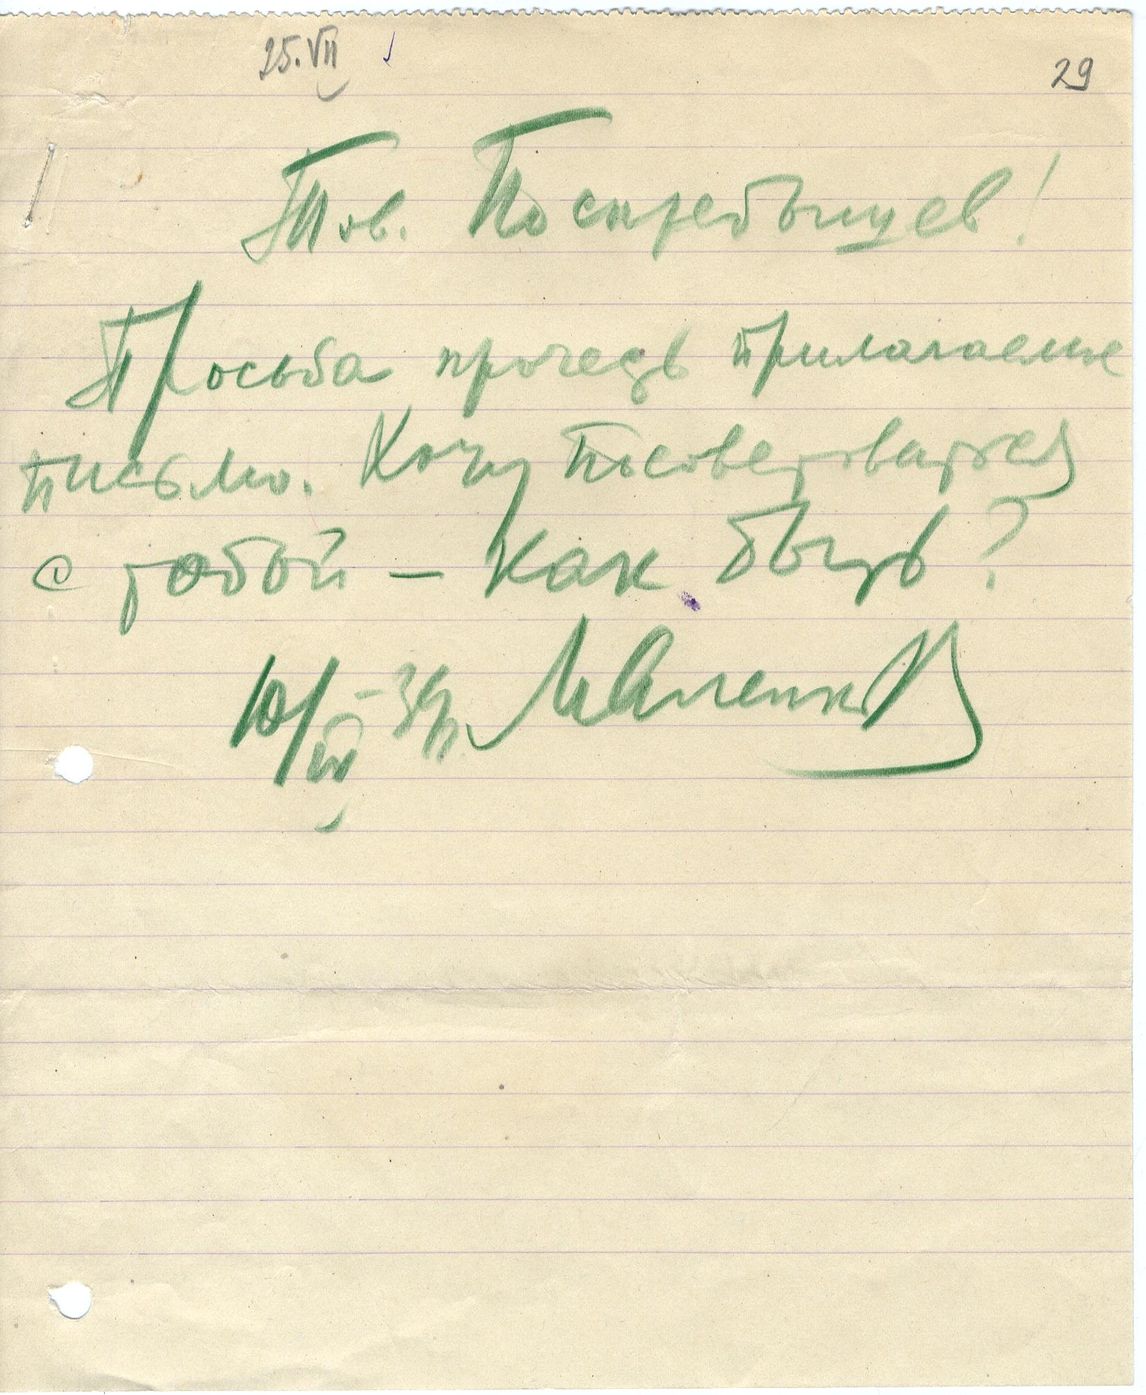 25.VII
29
Тов. Поскребышев!
Просьба прочесть прилагаемое
письмо. Хочу посоветоваться
с тобой – как быть?
10/VII –39г. Маленков